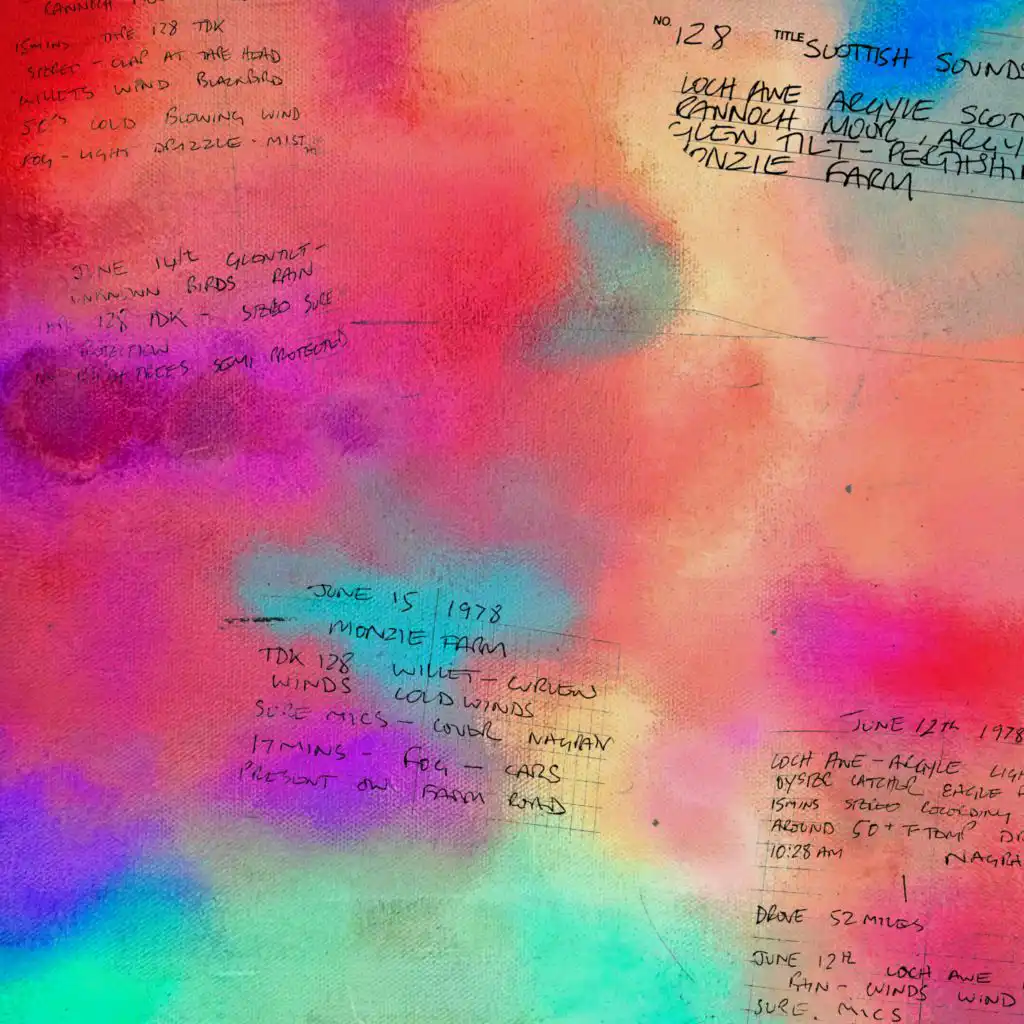 RANNOCH
15MINS TAPE 128 TDK
STEREO - CLAP AT TAPE HEAD
WILLETS WIND BLACKBIRD
50'S COLD BLOWING WIND
FOG - LIGHT DRIZZLE - MIST
NO. 128 TITLE SCOTTISH SOUNDS
LOCH AWE ARGYLE SCOT
RANNOCH MOOR, ARGY
GLEN TILT - PERTHSHI
MONZIE FARM
JUNE 14th GLENTILT -
UNKNOWN BIRDS RAIN
128 TDK - STEREO SURE
PROTECTION
SEMI PROTECTED
JUNE 15 1978
MONZIE FARM
TDK 128 WILLET - CURLEW
WINDS COLD WINDS
SURE MICS - COVER NAGRAN
17 MINS - FOG - CARS
PRESENT ON FARM ROAD
JUNE 12TH 1978
LOCH AWE - ARGYLE LIGH
OYSTER CATCHER EAGLE
15MINS STEREO RECORDING
AROUND 50+ F TEMP DR
10:28 AM NAGRA
DROVE 52 MILES
JUNE 12TH LOCH AWE
RAIN - WINDS WIND
SURE. MICS